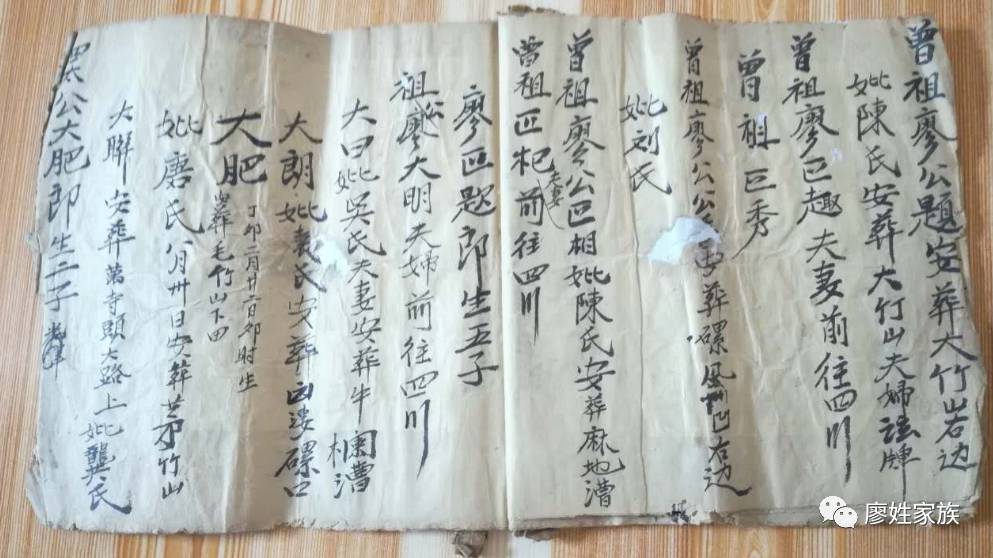 曾祖廖公題安葬大竹山右边
妣陳氏安葬大竹山夫婦竝牌
曾祖廖巨趣夫妻前往四川
曾祖巨秀
曾祖廖公公葬磥風凹右边
妣刘氏
曾祖廖公匹相妣陳氏安葬麻地漕
曾祖匹杞夫妻前往四川
廖匹题郎生五子
祖公廖大明夫婦前往四川
大日妣吳氏夫妻安葬牛欄漕
大朗妣袁氏安葬凶婆磥口
大肥丁卯二月廿六日卯時生
葬毛竹山下凹
妣唐氏八月卅日安葬茅竹山
大聯安葬萬寺頭大路上妣龔氏
黑公大肥郎生二子
廖姓家族